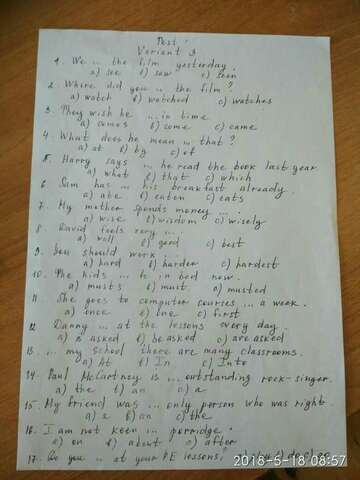 Test
Variant 3
1. We ... the film yesterday.
a) see b) saw c) seen
2. Where did you ... the film?
a) watch b) watched c) watches
3. They wish he ... in time.
a) comes b) come c) came
4. What does he mean ... that?
a) at b) by c) of
5. Harry says ... he read the book last year.
a) what b) that c) which
6. Sam has ... his breakfast already.
a) ate b) eaten c) eats
7. My mother spends money ... .
a) wise b) wisdom c) wisely
8. David feels very ...
a) well b) good c) best
9. You should work ... .
a) hard b) harder c) hardest
10. The kids ... to in bed now.
a) musts b) must c) musted
11. She goes to computer courses ... a week.
a) once b) one c) first
12. Danny ... at the lessons every day.
a) is asked b) be asked c) are asked
13. ... my school there are many classrooms.
a) At b) In c) Into
14. Paul McCartney is ... outstanding rock-singer.
a) the b) an c) a
15. My friend was ... only person who was right.
a) a b) an c) the
16. I am not keen ... porridge.
a) on b) about c) after
17. Do you ... at your PE lessons,
2018-5-18 08:57